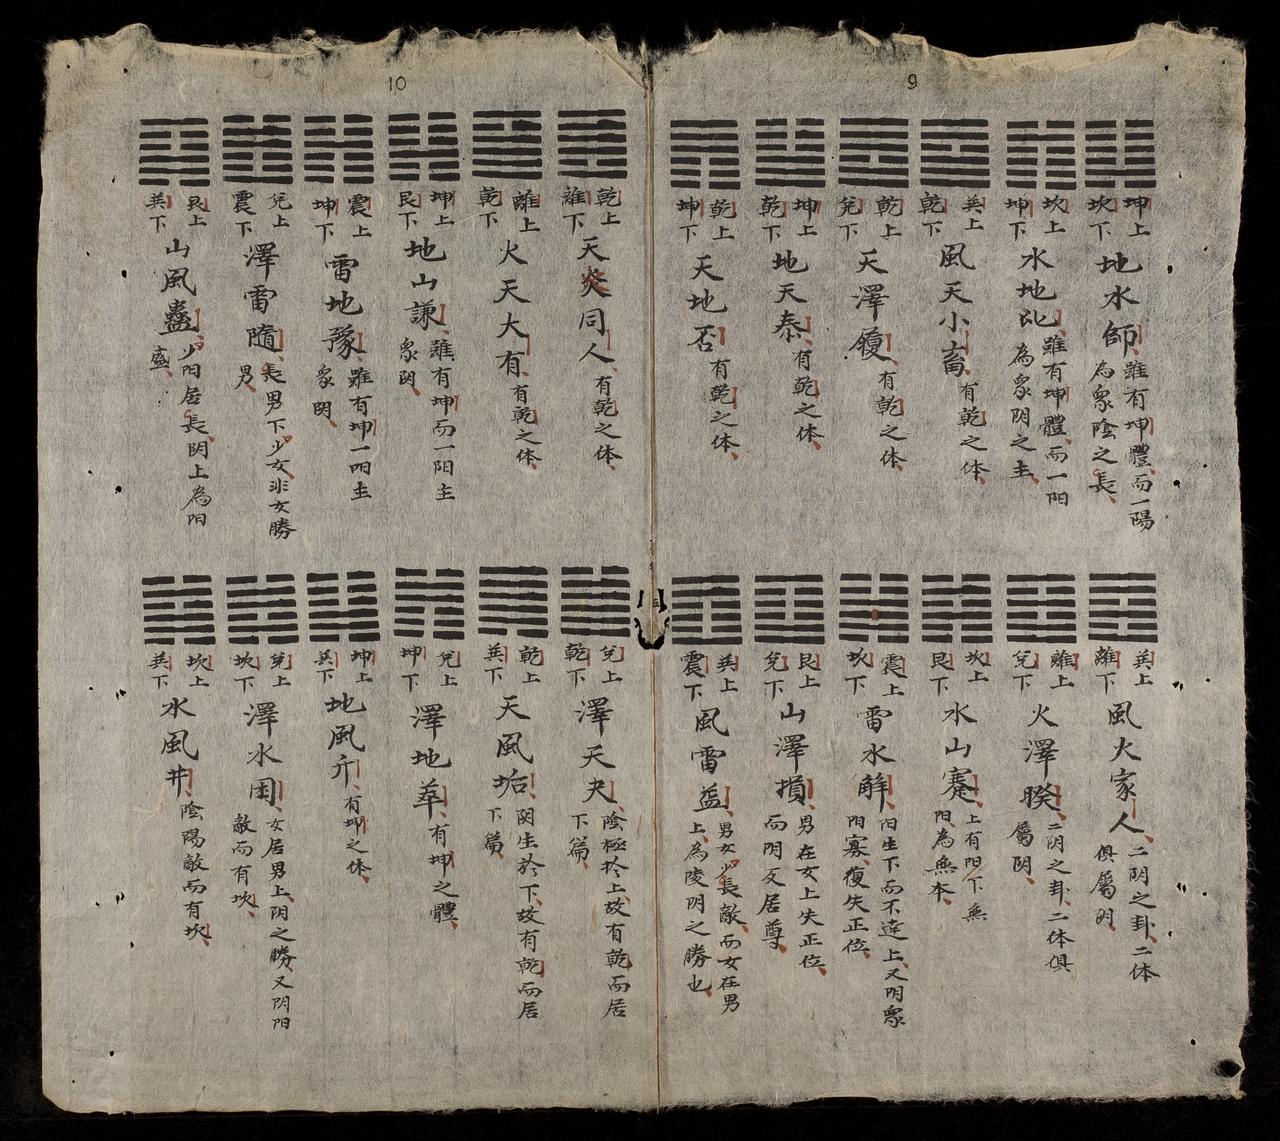 9
坤上
坎下
地水師、雖有坤體、而一陽
為衆陰之長、
坎上
坤下
水地比、雖有坤體、而一阳
為衆阴之主、
巽上
乾下
風天小畜、有乾之体、
乾上
兌下
天澤履、有乾之体、
坤上
乾下
地天泰、有乾之体、
乾上
坤下
天地否、有乾之体、
巽上
離下
風火家人、二阴之卦、二体
俱屬阴、
離上
兌下
火澤睽、二阴之卦、二体俱
屬阴、
坎上
艮下
水山蹇、上有阳、下無
阳、為無本、
震上
坎下
雷水解、阳生下而不達上、又阴衆
阳寡、復失正位、
艮上
兌下
山澤損、男在女上失正位、
而阴反居尊、
巽上
震下
風雷益、男女少長敵、而女在男
上、為陵阴之勝也、
10
乾上
離下
天炎同人、有乾之体、
離上
乾下
火天大有、有乾之体、
坤上
艮下
地山謙、雖有坤而一阳主
衆阴、
震上
坤下
雷地豫、雖有坤一阳主
衆阴、
兌上
震下
澤雷隨、長男下少女、非女勝
男、
艮上
巽下
山風蠱、少阳居長阴上為阳
盛、
兌上
乾下
澤天夬、陰極於上、故有乾而居
下篇、
乾上
巽下
天風姤、阴生於下、故有乾而居
下篇、
兌上
坤下
澤地萃、有坤之體、
坤上
巽下
地風升、有坤之体、
兌上
坎下
澤水困、女居男上、阴之勝、又阴阳
敵而有坎、
坎上
巽下
水風井、陰陽敵而有坎、